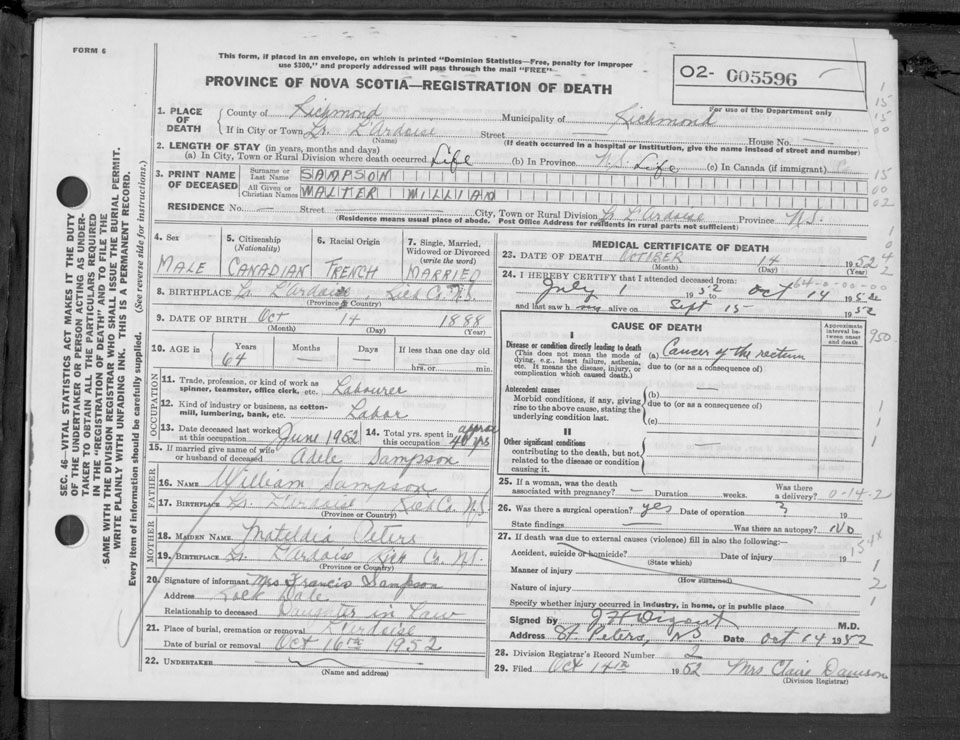 FORM 6
This form, if placed in an envelope, on which is printed "Dominion Statistics—Free, penalty for improper
use $300," and properly addressed will pass through the mail "FREE"
PROVINCE OF NOVA SCOTIA—REGISTRATION OF DEATH
02- 005596
For use of the Department only
1. PLACE OF DEATH
County of Richmond Municipality of Richmond
If in City or Town Lr. L'Ardoise Street House No. —
(Name) (If death occurred in a hospital or institution, give the name instead of street and number)
2. LENGTH OF STAY (in years, months and days)
(a) In City, Town or Rural Division where death occurred Life (b) In Province N.S. Life (c) In Canada (if immigrant)
3. PRINT NAME OF DECEASED
Surname or Last Name SAMPSON
All Given or Christian Names WALTER WILLIAM
RESIDENCE No. — Street — City, Town or Rural Division Lr L'Ardoise Province N.S.
(Residence means usual place of abode. Post Office Address for residents in rural parts not sufficient)
4. Sex MALE
5. Citizenship (Nationality) CANADIAN
6. Racial Origin FRENCH
7. Single, Married, Widowed or Divorced (write the word) MARRIED
8. BIRTHPLACE Lr L'Ardoise, Rich Co. N.S.
(Province or Country)
9. DATE OF BIRTH Oct 14 1888
(Month) (Day) (Year)
10. AGE in Years Months Days If less than one day old
64 — — hrs. or min.
OCCUPATION
11. Trade, profession, or kind of work as spinner, teamster, office clerk, etc. Labourer
12. Kind of industry or business, as cotton-mill, lumbering, bank, etc. Labor
13. Date deceased last worked at this occupation June 1952
14. Total yrs. spent in this occupation approx 40 yrs
15. If married give name of wife or husband of deceased Adele Sampson
FATHER
16. NAME William Sampson
17. BIRTHPLACE Lr. L'Ardoise Rich Co. N.S.
(Province or Country)
MOTHER
18. MAIDEN NAME Matildia Peters
19. BIRTHPLACE Lr. L'Ardoise Rich Co. N.S.
(Province or Country)
20. Signature of informant Mrs Francis Sampson
Address Rock Dale
Relationship to deceased Daughter in Law
21. Place of burial, cremation or removal L'Ardoise
Date of burial or removal Oct 16th 1952
22. UNDERTAKER
(Name and address)
MEDICAL CERTIFICATE OF DEATH
23. DATE OF DEATH OCTOBER 14 1952
(Month) (Day) (Year)
24. I HEREBY CERTIFY that I attended deceased from:
July 1 1952 Oct 14 1952
64-0-00-00
and last saw h alive on Sept 15 1952
CAUSE OF DEATH
Approximate interval between onset and death
I
Disease or condition directly leading to death
(This does not mean the mode of dying, e.g., heart failure, asthenia, etc. It means the disease, injury, or complication which caused death.)
(a) Cancer of the rectum
due to (or as a consequence of)
Antecedent causes
Morbid conditions, if any, giving rise to the above cause, stating the underlying condition last.
(b)
due to (or as a consequence of)
(c)
II
Other significant conditions
contributing to the death, but not related to the disease or condition causing it.
—
25. If a woman, was the death associated with pregnancy? – Duration weeks. Was there a delivery? 0-14-2
26. Was there surgical operation? yes Date of operation 3 19
State findings — Was there an autopsy? No
27. If death was due to external causes (violence) fill in also the following:
Accident, suicide or homicide? Date of injury 19
(State which)
Manner of injury
(How sustained)
Nature of injury
Specify whether injury occurred in industry, in home, or in public place
Signed by M.D.
Address St. Peters, NS Date Oct 14 1952
28. Division Registrar's Record Number 2
29. Filed Oct 14th 1952 Mrs Claire
(Division Registrar)
SEC. 46—VITAL STATISTICS ACT MAKES IT THE DUTY
OF THE UNDERTAKER OR PERSON ACTING AS UNDER-
TAKER TO OBTAIN ALL THE PARTICULARS REQUIRED
IN THE "REGISTRATION OF DEATH" AND TO FILE THE
SAME WITH THE DIVISION REGISTRAR WHO SHALL ISSUE THE BURIAL PERMIT.
WRITE PLAINLY WITH UNFADING INK. THIS IS A PERMANENT RECORD.
Every item of information should be carefully supplied. (See reverse side for instructions.)